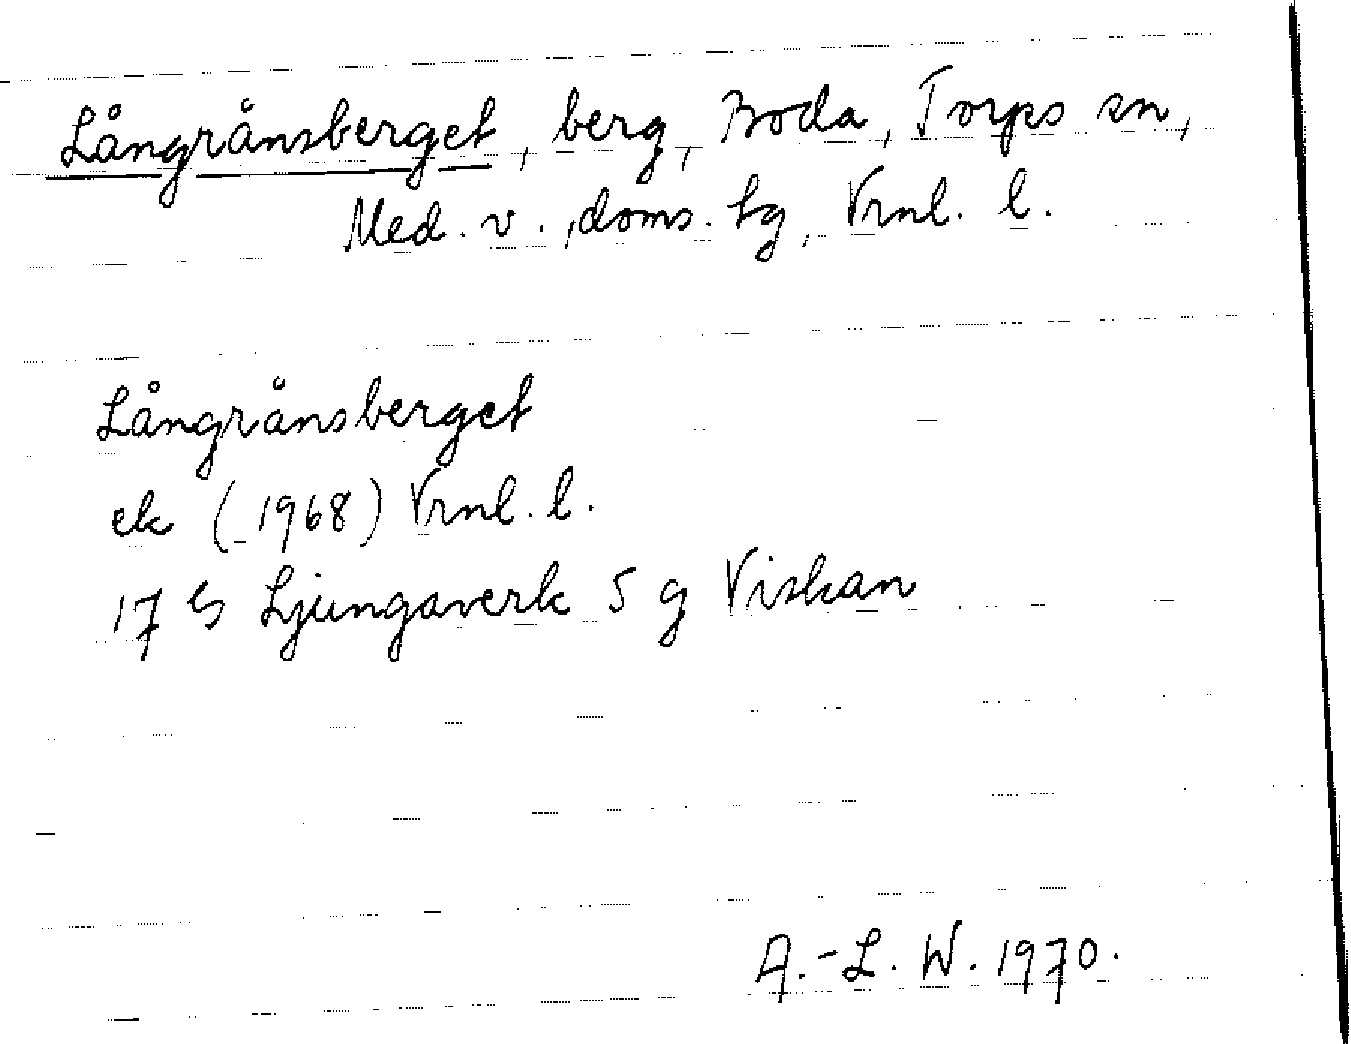 Långrånsberget, berg, Boda, Torps sn,
Med. v., doms. hg, Vrnl. l.
Långrånsberget
ek (1968) Vrnl. l.
17 G Ljungaverk 5 g Viskan
A.-L. W. 1970.